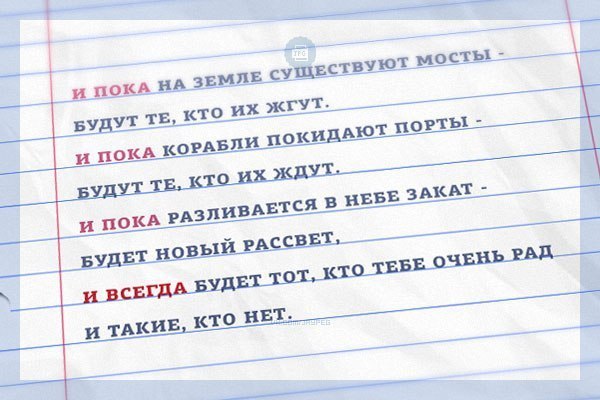 И ПОКА НА ЗЕМЛЕ СУЩЕСТВУЮТ МОСТЫ -
БУДУТ ТЕ, КТО ИХ ЖГУТ.
И ПОКА КОРАБЛИ ПОКИДАЮТ ПОРТЫ -
БУДУТ ТЕ, КТО ИХ ЖДУТ.
И ПОКА РАЗЛИВАЕТСЯ В НЕБЕ ЗАКАТ -
БУДЕТ НОВЫЙ РАССВЕТ,
И ВСЕГДА БУДЕТ ТОТ, КТО ТЕБЕ ОЧЕНЬ РАД
И ТАКИЕ, КТО НЕТ.